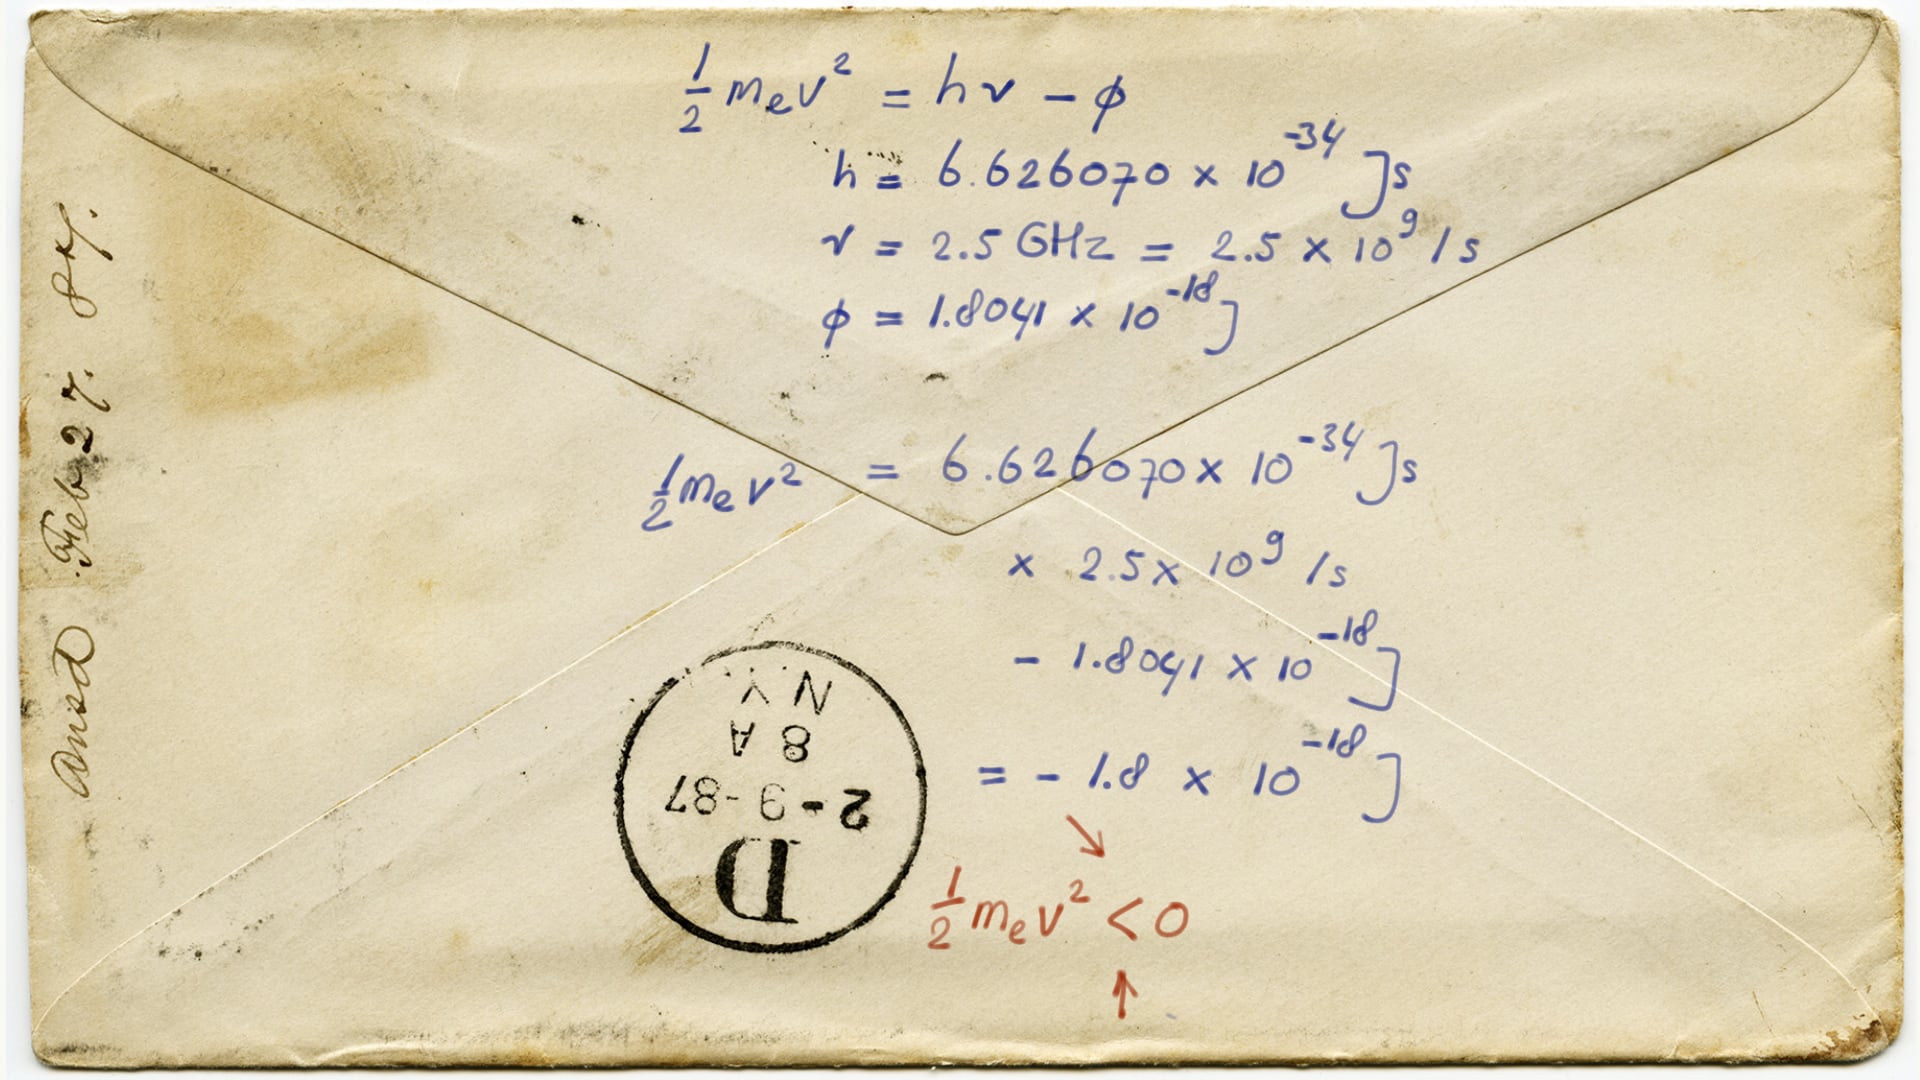 ½ mₑv² = hν − ϕ
h = 6.626070 × 10⁻³⁴ Js
ν = 2.5 GHz = 2.5 × 10⁹ /s
ϕ = 1.8041 × 10⁻¹⁸ J
½ mₑv² = 6.626070 × 10⁻³⁴ Js
× 2.5 × 10⁹ /s
− 1.8041 × 10⁻¹⁸ J
= − 1.8 × 10⁻¹⁸ J
½ mₑv² < 0
Feb 27.
N.Y.
8 A
2-9-87
D